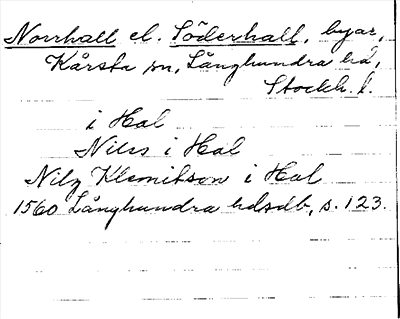 Norrhall el. Söderhall, byar,
Kårsta sn, Långhundra hd,
Stockh. l.
i Hal
Nils i Hal
Nilz Klemitson i Hal
1560 Långhundra hdsdb, s. 123.